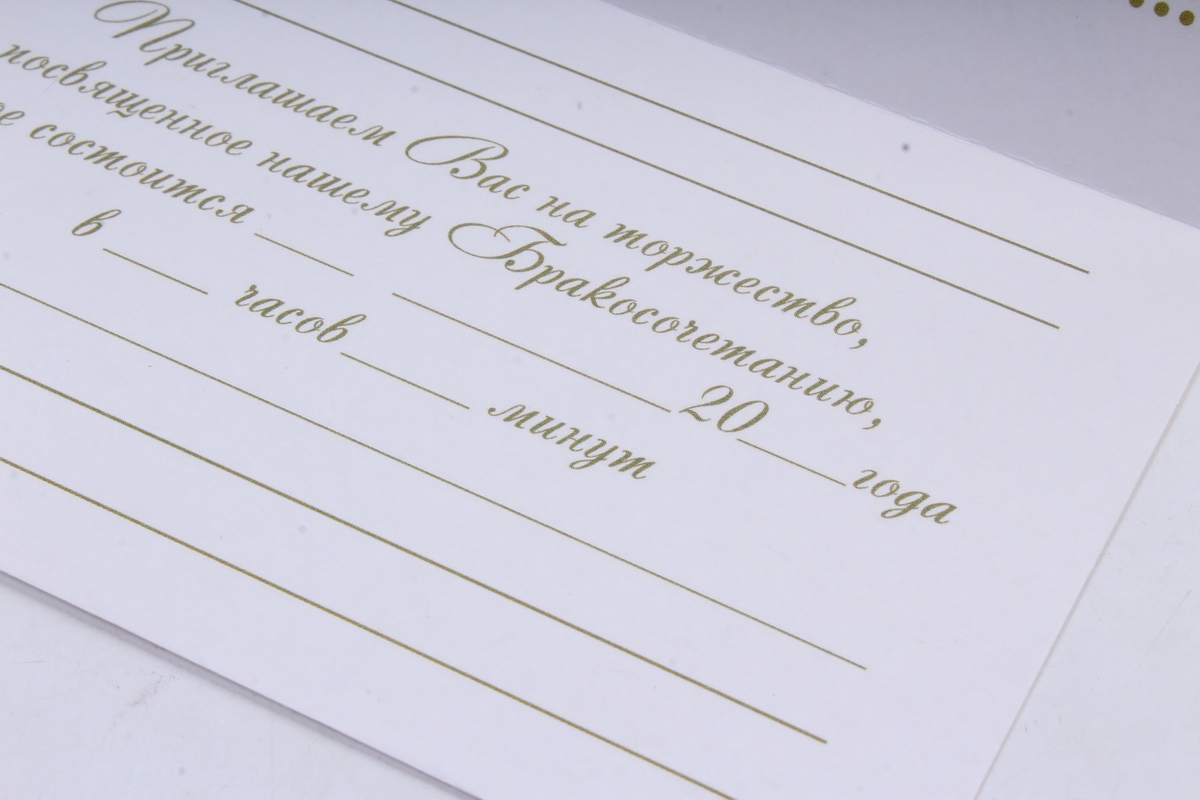 Приглашаем Вас на торжество,
посвященное нашему Бракосочетанию,
ое состоится ____ ____________ 20____ года
в ____ часов ____ минут